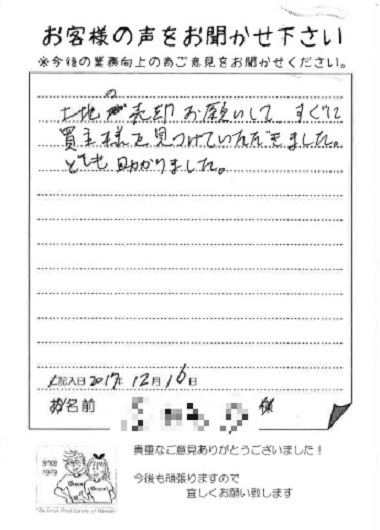 お客様の声をお聞かせ下さい
※今後の業務向上の為ご意見をお聞かせください。
土地の売却お願いして すぐに
買主様を見つけていただきました。
とても助かりました。
ご記入日 2017年 12月 16日
お名前 様
貴重なご意見ありがとうございました！
今後も頑張りますので
宜しくお願い致します
since
1979